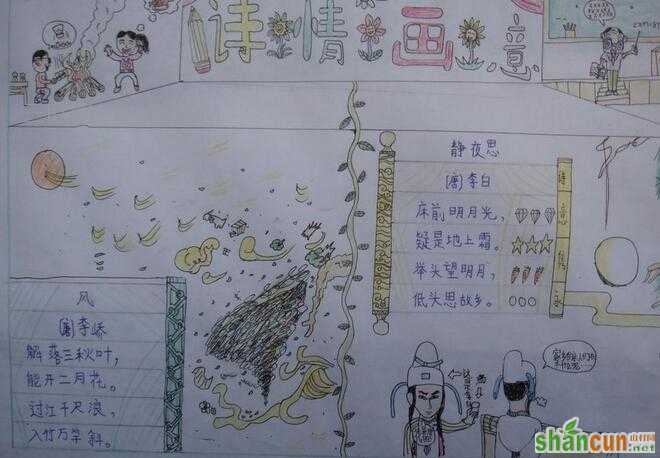 诗情画意
静夜思
[唐]李白
床前明月光,
疑是地上霜。
举头望明月,
低头思故乡。
诗
意
风
[唐]李峤
解落三秋叶,
能开二月花。
过江千尺浪,
入竹万竿斜。
shancun
山村网
.net